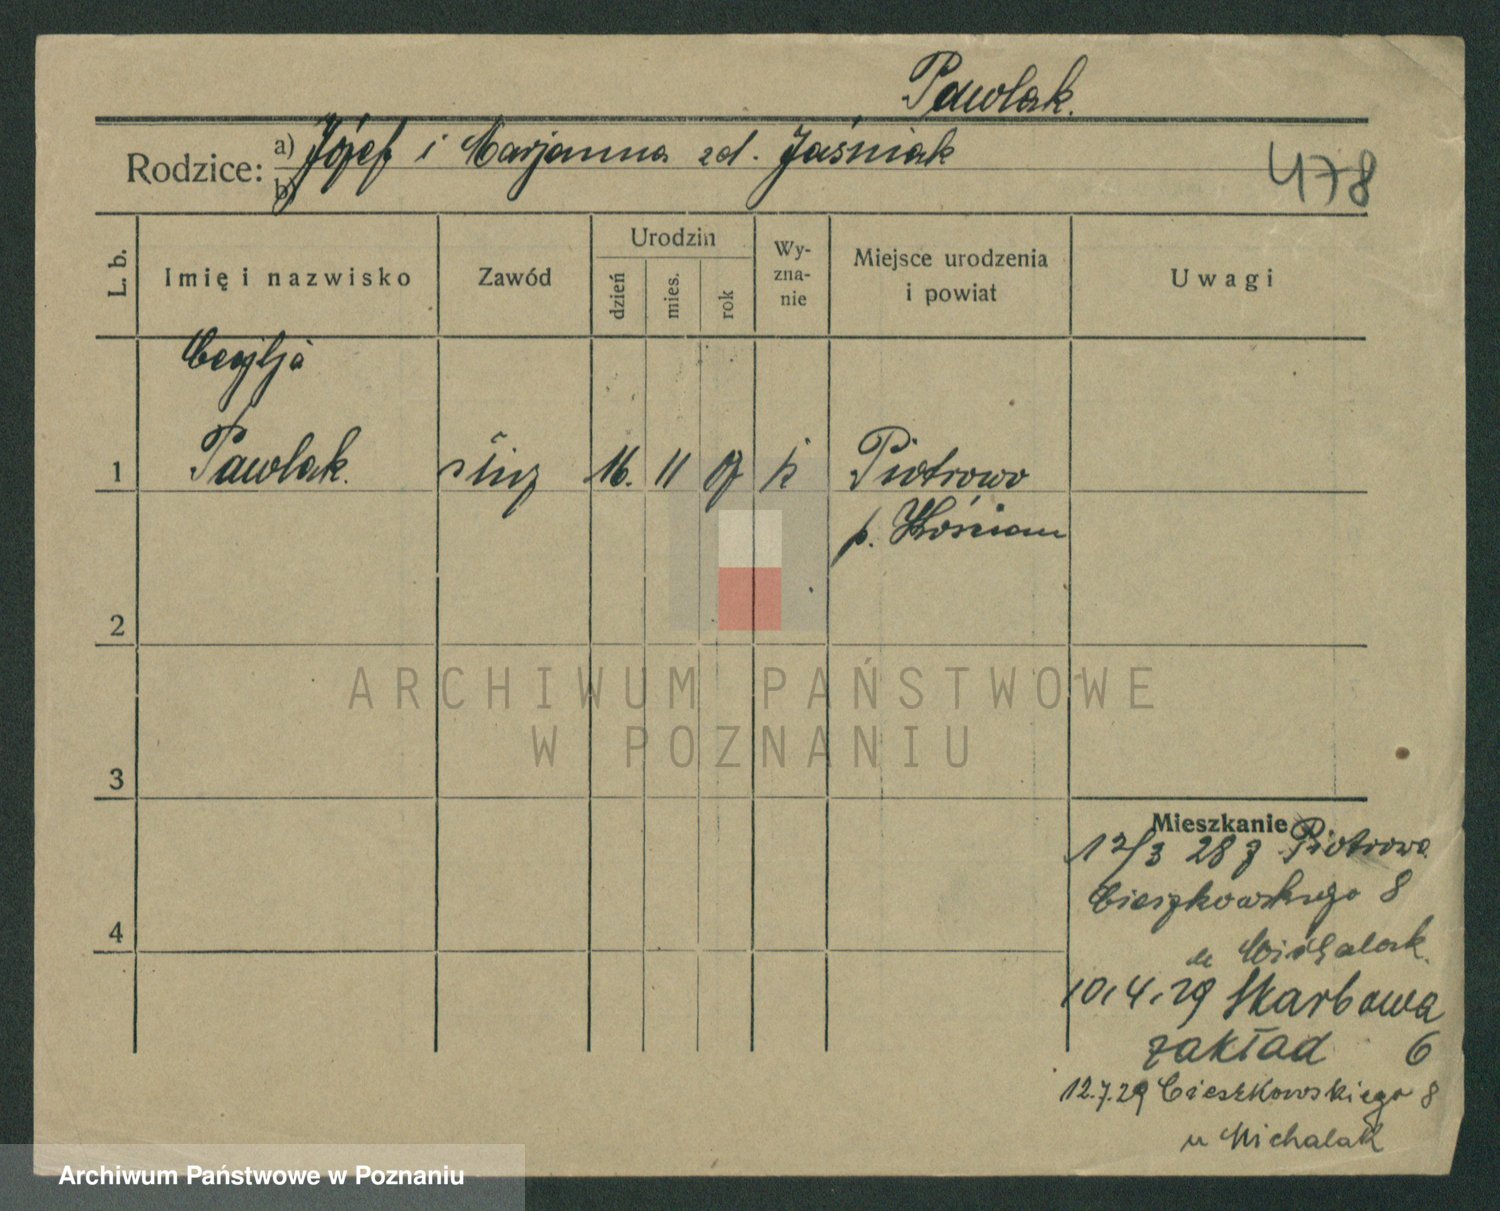 Pawlak.
Rodzice: a) Józef i Marjanna zd. Jaśniak
b)
478
L. b. Imię i nazwisko Zawód Urodzin dzień mies. rok Wyzna-nie Miejsce urodzenia i powiat Uwagi
Cecylja
1 Pawlak. służ 16. 11 09 k Piotrowo
p. Kościan
2
3
4
Mieszkanie
12/3 28 z Piotrowa
Cieszkowskiego 8
u Michalak.
10.4.29 Skarbowa
zakład 6
12.7.29 Cieszkowskiego 8
u Michalak
ARCHIWUM PAŃSTWOWE
W POZNANIU
Archiwum Państwowe w Poznaniu